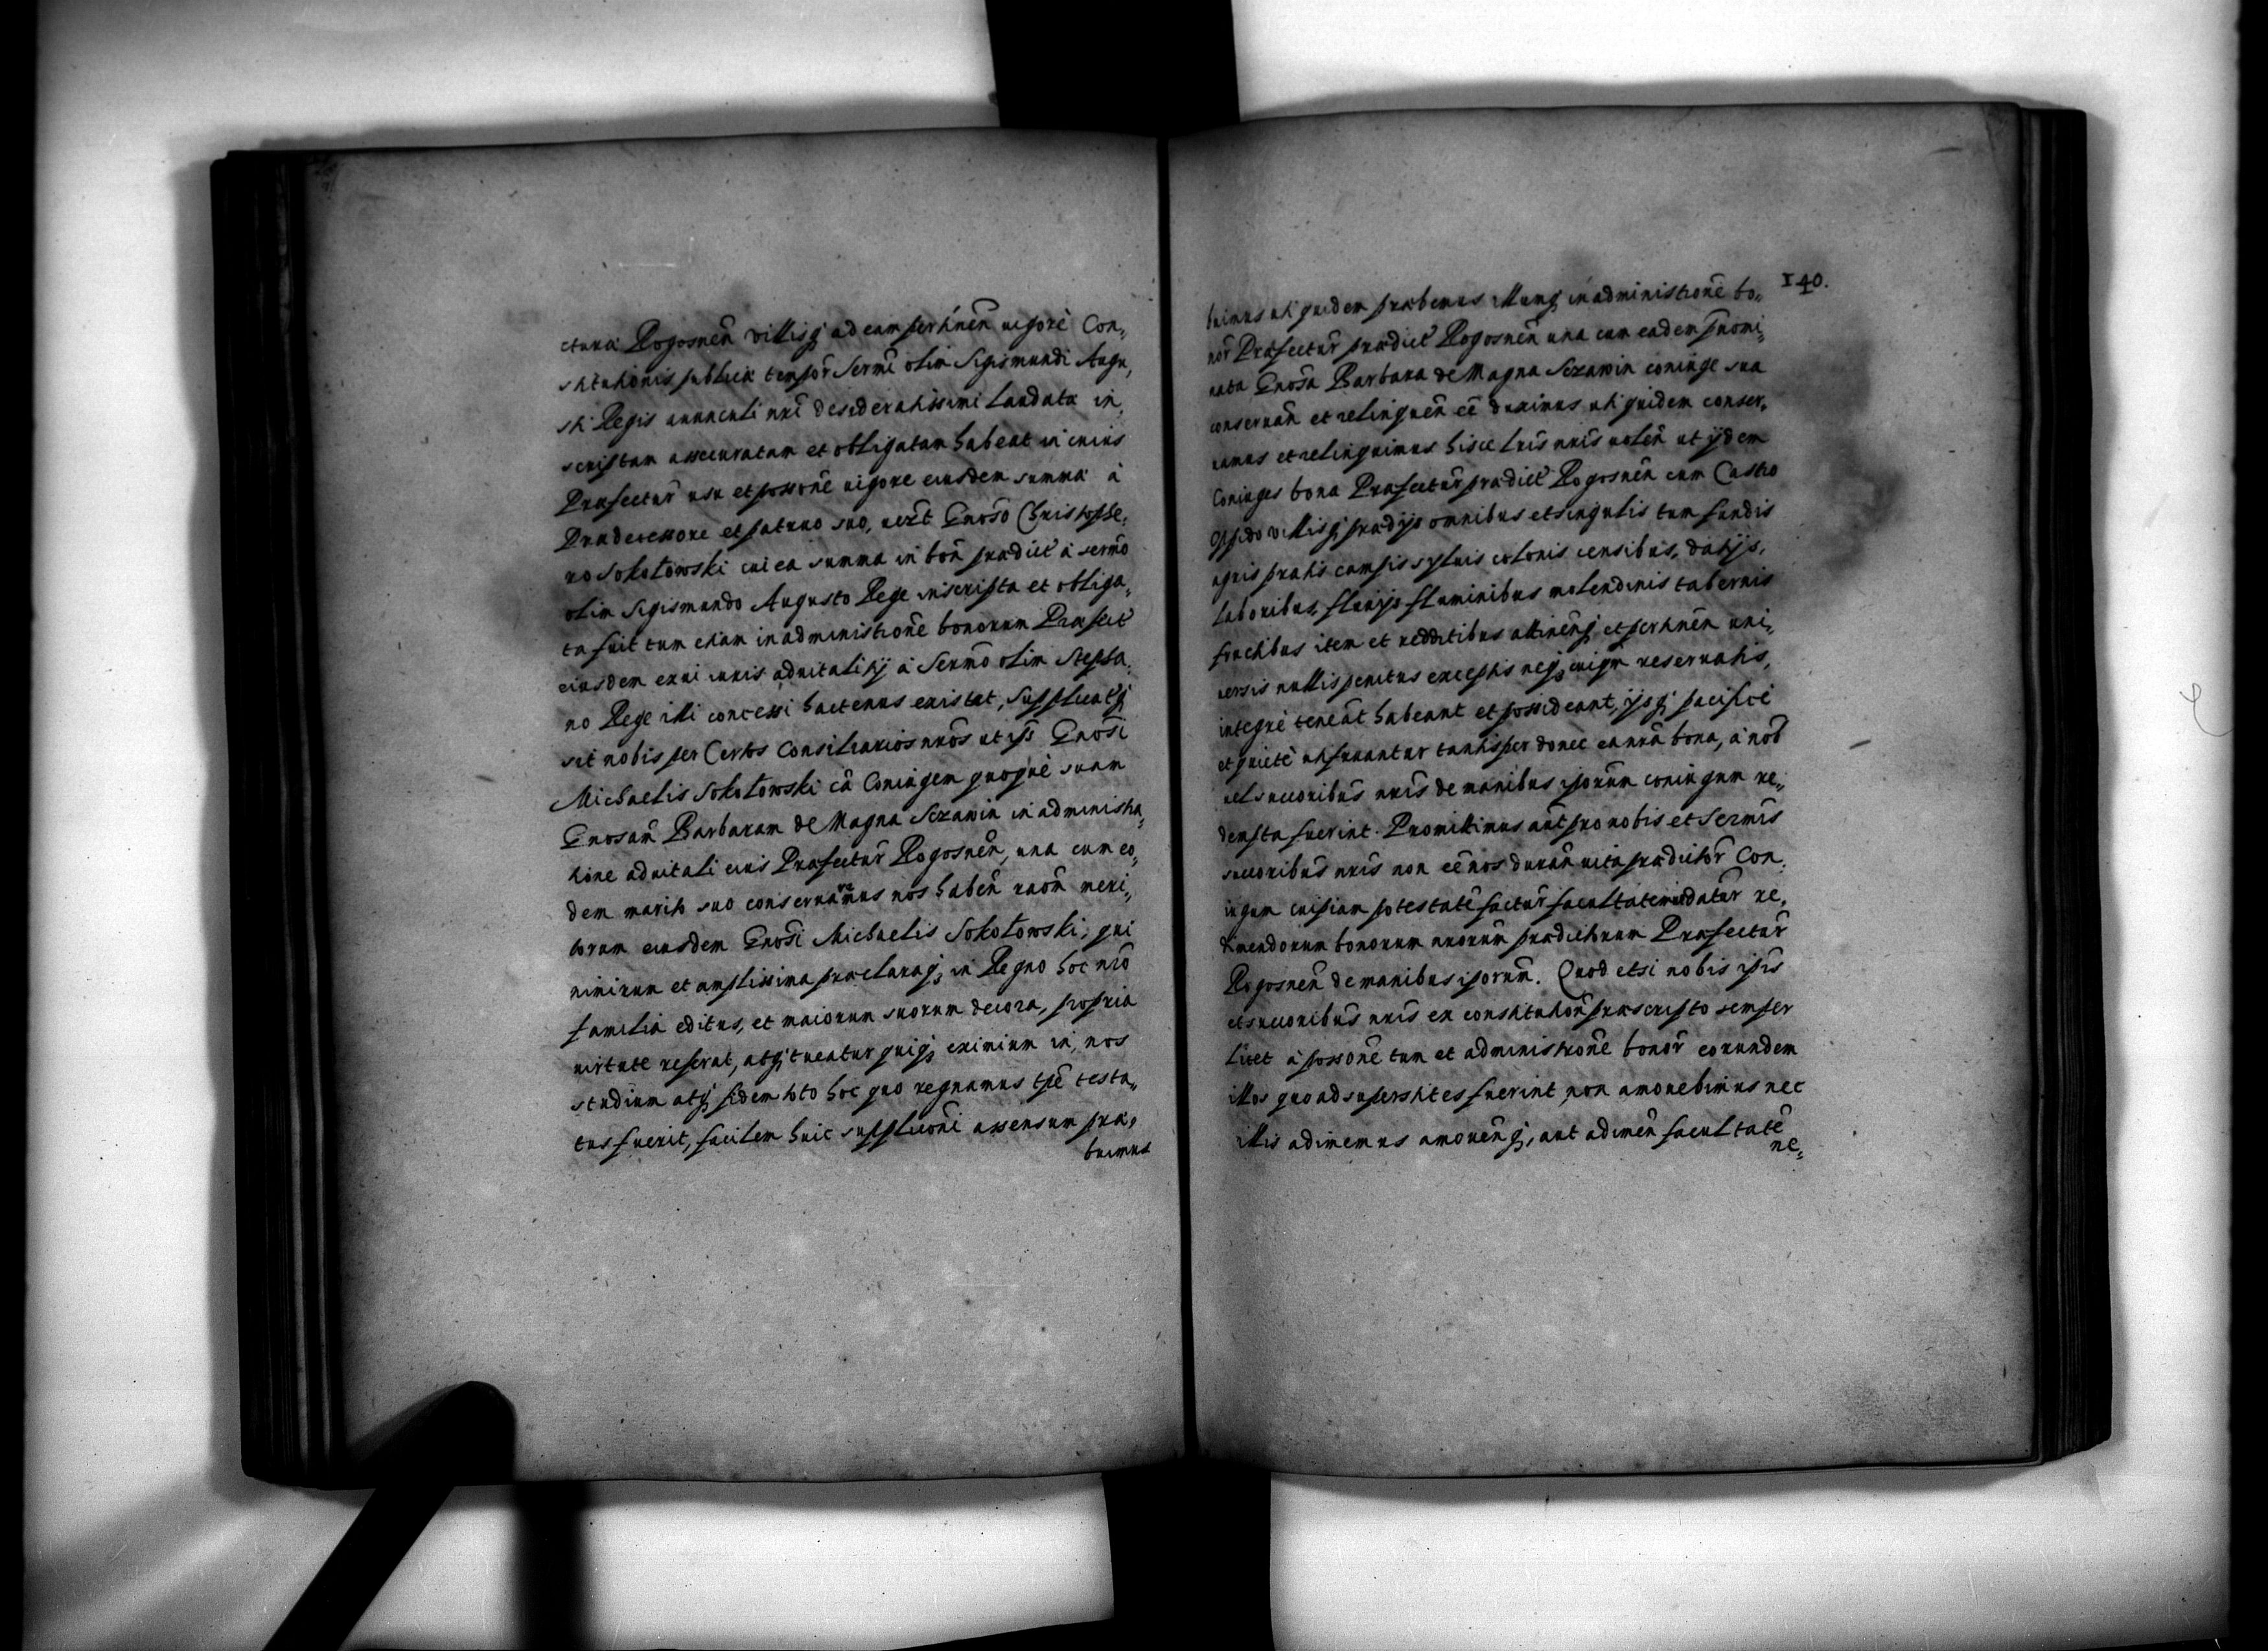 cturæ Rogosneñ villisq; ad eam pertineñ uigorè Con„
stitutionis publicæ tempor̃ Serm̃i olim Sigismundi Augu„
sti Regis auunculi nr̃i desideratissimi laudatæ in„
scriptam assecuratam et obligatam habeat in cuius
Præfectur̃ usu et possone͂ uigore eiusdem summæ à
Prædecessore et patruo suo, Gnoso͂ Christophe„
ro Sokołowski cui ea summa in boñ prædict̃ à sermo͂
olim Sigismundo Augusto Rege inscripta et obliga„
ta fuit tum etiam in administrone͂ bonorum Præfect̃
eiusdem exui iuris aduitalitij à Sermo͂ olim Stepha„
no Rege illi concessi hactenus existat, Supplicatq;
sit nobis per Certos Consiliarios nr̃os ut ips̃ Gnosi͂
Michaelis Sokołowski Coniugem quoquè suam
Gnosam͂ Barbaram de Magna Srzawin in administra„
tione aduitali eius Præfectur̃ Rogosneñ, una cum eo„
dem marito suo conseruaremus nos habeñ raoñ meri„
torum eiusdem Gnosi͂ Michaelis Sokołowski, qui
nimirum et amplissima præclaraq; in Regno hoc nr̃o
familia editus, et maiorum suorum decora, propria
uirtute referat, atq; tueatur quiq; eximium in nos
studium atq; fidem toto hoc quo regnamus tp̃e testa„
tus fuerit, facilem huic suppliconi͂ assensum præ„
buimus
140.
buimus uti quidem præbemus illumq; in administrone͂ bo„
nor̃ Præfectur̃ prædict̃ Rogosneñ una cum eadem p̃nomi„
nata Gnosa͂ Barbara de Magna Srzawin coniuge sua
conseruañ et relinqueñ ee͂ duximus uti quidem conser„
uamus et relinquimus hisce lr̃is nr̃is uoleñ ut ijdem
Coniuges bona Præfectur̃ prædict̃ Rogosneñ cum Castro
Oppido villisq; prædijs omnibus et singulis tum fundis
agris pratis campis syluis colonis censibus, datijs,
laboribus, fluuijs fluminibus molendinis tabernis
fructibus item et redditibus attineñq; et pertineñ uni„
uersis nullis penitus exceptis neq; cuiqm̃ reseruatis,
integrè teneãt habeant et possideant, ijsq; pacificè
et quietè utifruantur tantisper donec ea nr̃a bona, à nob̃
uel succoribus͂ nr̃is de manibus ipsorum͂ coniugum re„
dempta fuerint. Promittimus aut̃ pro nobis et Sermis͂
succoribus͂ nr̃is non ee͂ nos durañ uita prædictor̃ Con„
iugum cuipiam potestate͂ factur̃ facultatemue datur̃ re„
dimendorum bonorum nrorum͂ prædictorum Præfectur̃
Rogosneñ de manibus ipsorum͂. Quod etsi nobis ipsis͂
et succoribus͂ nr̃is ex constitution̄ præscripto semper
licet à possone͂ tum et administrone͂ bonor̃ eorundem
illos quoad superstites fuerint non amouebimus nec
illis adimemus amoueñq;, aut adimeñ facultate͂
ne„